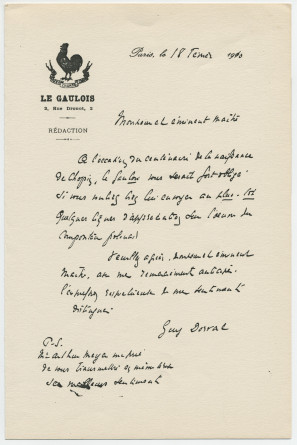 LE GAULOIS
2, Rue Drouot, 2
RÉDACTION
Paris, le 18 1910
Monsieur et éminent Maître
A l'occasion du centenaire de la naissance
de Chopin, le Gaulois vous serait fort obligé
si vous vouliez bien lui envoyer au plus tôt
quelques lignes d'appréciation sur l'œuvre du
compositeur polonais
Veuillez agréer, Monsieur et éminent
Maître, avec mes remerciements anticipés
l'expression respectueuse de mes sentiments
distingués
Guy Dorval
P.S.
Mr Arthur Meyer me prie
de vous transmettre
ses meilleurs sentiments